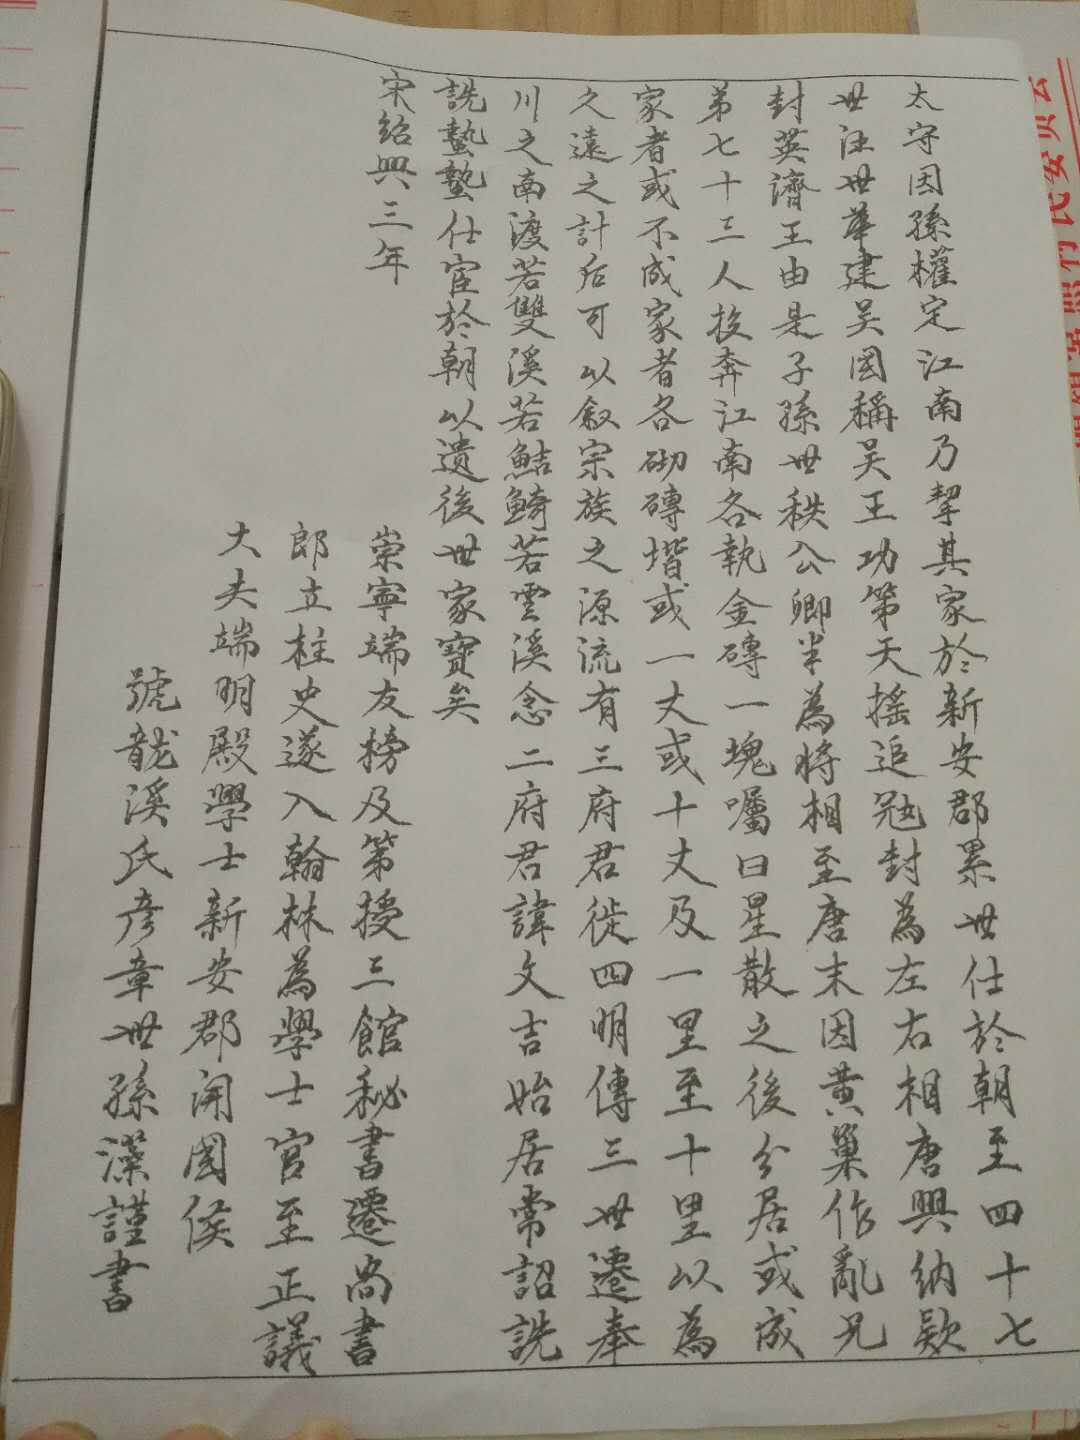 太守因孫權定江南乃挈其家於新安郡累世仕於朝至四十七
世汪世華建吴國稱吴王功第天摇追冦封為左右相唐興纳欵
封英濟王由是子孫世秩公卿半為將相至唐末因黄巢作亂兄
弟七十三人投奔江南各執金磚一塊囑曰星散之後分居或成
家者或不成家者各砌磚堦或一丈或十丈及一里至十里以為
久遠之計后可以叙宗族之源流有三府君徙四明傳三世遷奉
川之南渡若雙溪若鮚鮚若雲溪念二府君諱文吉始居常詔詵
詵蟄蟄仕宦於朝以遺後世家寶矣
宋紹興三年
崇寧端友榜及第授三館秘書遷尚書
郎立柱史遂入翰林為學士官至正議
大夫端明殿學士新安郡開國侯
號龍溪氏彦章世孫藻謹書